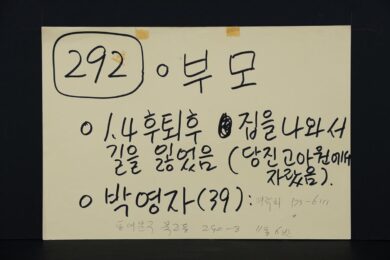 292 o 부모
o 1.4 후퇴후 집을 나와서
길을 잃었음 (당진고아원에서
자랐음).
o 박영자(39):